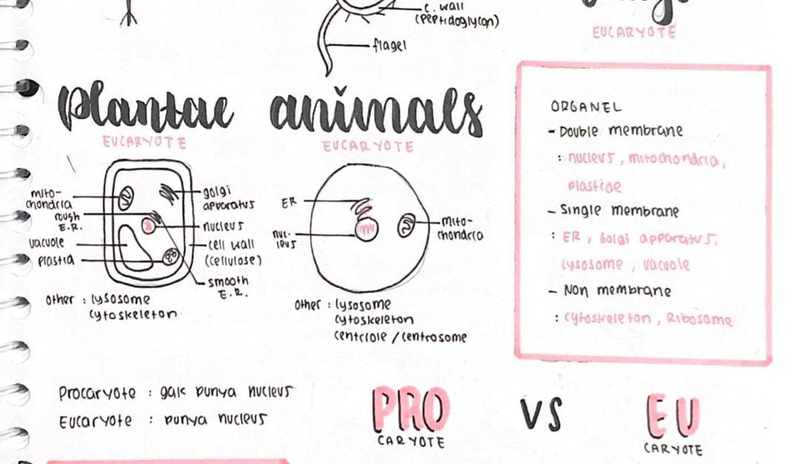 c. wall
(peptidoglycan)
flagel
EUCARYOTE
plantae
EUCARYOTE
mito-
chondria
rough
E.R.
vacuole
plastid
golgi
apparatus
nucleus
cell wall
(cellulose)
smooth
E.R.
other : lysosome
cytoskeleton
animals
EUCARYOTE
ER
nuc-
leus
mito-
chondria
other : lysosome
cytoskeleton
centriole / centrosome
ORGANEL
- Double membrane
: nucleus, mitochondria,
plastide
- Single membrane
: ER, Golgi apparatus,
lysosome, vacuole
- Non membrane
: cytoskeleton, Ribosome
Procaryote : gak punya nucleus
Eucaryote : punya nucleus
PRO
CARYOTE
VS
EU
CARYOTE